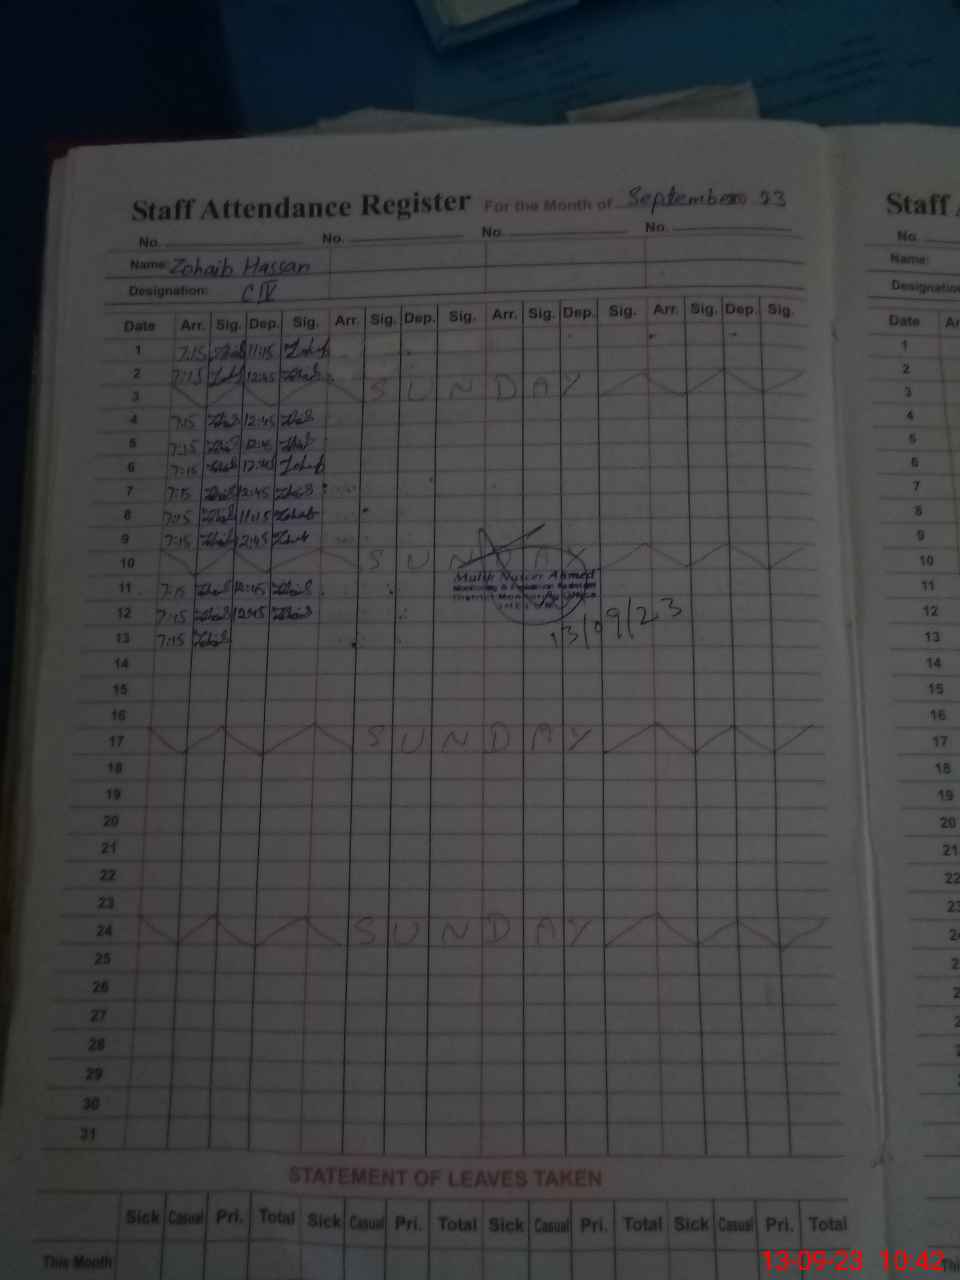 Staff Attendance Register For the Month of September 23
Staff
No. No. No. No.
No.
Name: Zohaib Hassan
Name:
Designation: CIV
Designation
Date Arr. Sig. Dep. Sig. Arr. Sig. Dep. Sig. Arr. Sig. Dep. Sig. Arr. Sig. Dep. Sig.
Date
1 7:15 11:15 Zohaib
1
2 7:15 Zohaib 12:45 Zohaib
2
3 SUNDAY
3
4 7:15 12:45
4
5 7:15 12:45
5
6 7:15 12:45 Zohaib
6
7 7:15 12:45
7
8 7:15 11:15 Zohaib
8
9 7:15 12:45
9
10 SUNDAY
10
Malik Naseer Ahmed
Monitoring & Evaluation Assistant
District Monitoring Office
JHELUM
11 7:15 12:45
11
12 7:15 12:45
12
13/09/23
13 7:15
13
14
14
15
15
16
16
17 SUNDAY
17
18
18
19
19
20
20
21
21
22
22
23
23
24 SUNDAY
24
25
26
27
28
29
30
31
STATEMENT OF LEAVES TAKEN
Sick Casual Pri. Total Sick Casual Pri. Total Sick Casual Pri. Total Sick Casual Pri. Total
This Month
13-09-23 10:42